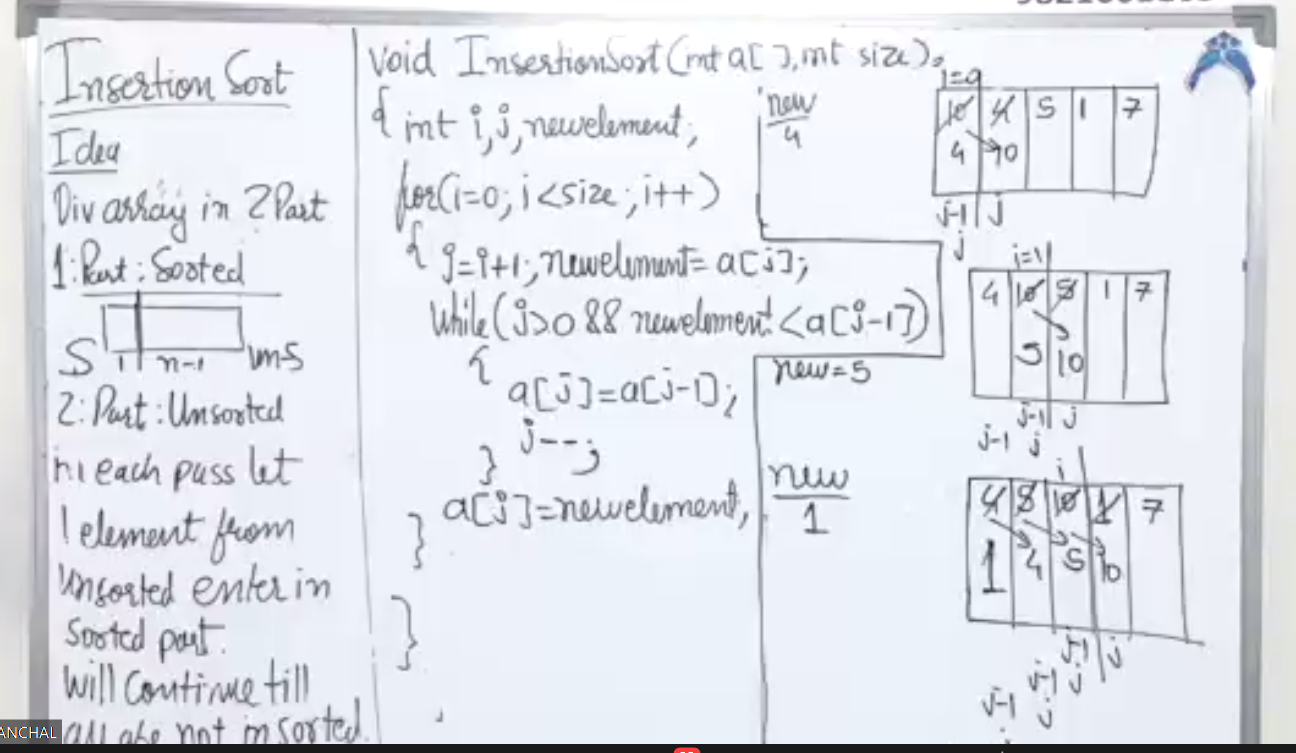 Insertion Sort
Idea
Div array in 2 Part
1: Part : Sorted
S 1 n-1 Un-S
2: Part : Unsorted
In each pass let
1 element from
Unsorted enter in
Sorted part.
Will Continue till
all are not in sorted.
void InsertionSort(int a[ ], int size)
{ int i, j, newelement;
for(i=0; i<size; i++)
{ j=i+1; newelement= a[j];
while(j>0 && newelement <a[j-1])
{
a[j]=a[j-1];
j--;
}
a[j]=newelement;
}
}
new
4
i=0
10 4 5 1 7
4 10
j-1 j
j
i=1
4 10 5 1 7
5 10
j-1 j
j-1 j
new=5
new
1
i
4 5 10 1 7
1 4 5 10
j-1 j
j-1 j
j-1 j
ANCHAL